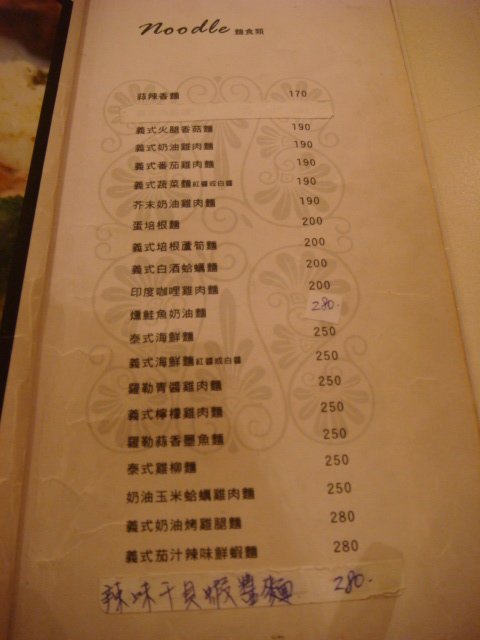 Noodle 麵食類
蒜辣香麵 170
義式火腿香菇麵 190
義式奶油雞肉麵 190
義式番茄雞肉麵 190
義式蔬菜麵紅醬或白醬 190
芥末奶油雞肉麵 190
蛋培根麵 200
義式培根蘆筍麵 200
義式白酒蛤蠣麵 200
印度咖哩雞肉麵 200
燻鮭魚奶油麵 280.
泰式海鮮麵 250
義式海鮮麵紅醬或白醬 250
羅勒青醬雞肉麵 250
義式檸檬雞肉麵 250
羅勒蒜香墨魚麵 250
泰式雞柳麵 250
奶油玉米蛤蠣雞肉麵 250
義式奶油烤雞腿麵 280
義式茄汁辣味鮮蝦麵 280
辣味干貝蝦醬麵 280.